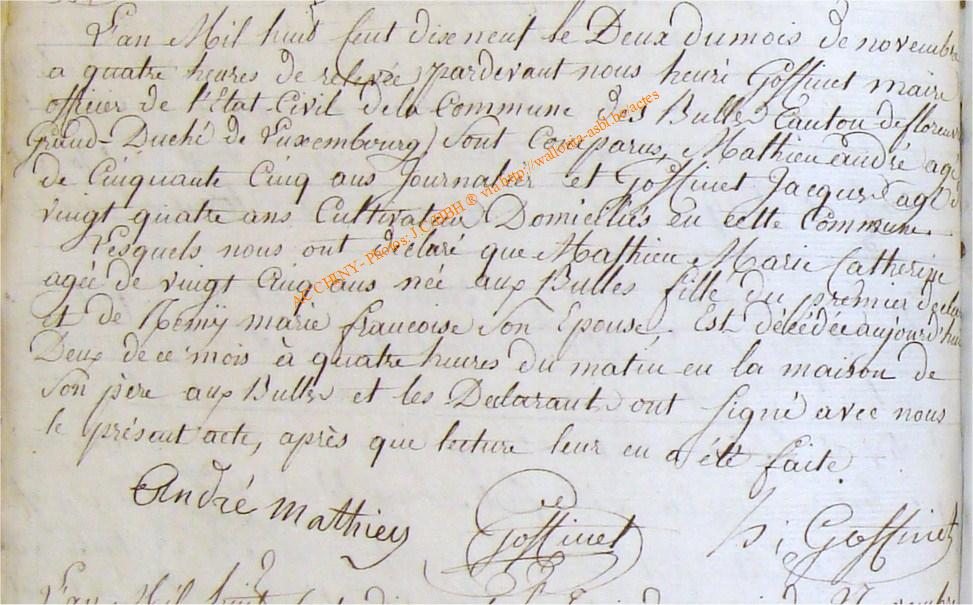 L'an Mil huit Cent dixneuf le Deux du mois de novembre
a quatre heures de relevée pardevant nous henri Goffinet maire
officier de l'Etat Civil de la Commune des Bulles Canton de florenville
Grand-Duché de Luxembourg, Sont Comparus, Mathieu andré agé
de Cinquante Cinq ans Journalier et Goffinet Jacques agé de
vingt quatre ans Cultivateur Domiciliés en cette Commune
Lesquels nous ont Déclaré que Mathieu Marie Catherine
agée de vingt Cinq ans née aux Bulles fille du premier
et de Remy marie francoise Son Epouse, Est décédée aujourd'hui
Deux de ce mois à quatre heures du matin en la maison de
Son père aux Bulles et les Declarants ont Signé avec nous
le présent acte, après que lecture leur en a été faite
André Mathieu Goffinet h; Goffinet
L'an Mil huit
ACCHINY - Photos J C HBH ® via http://wallonia-asbl.be/actes